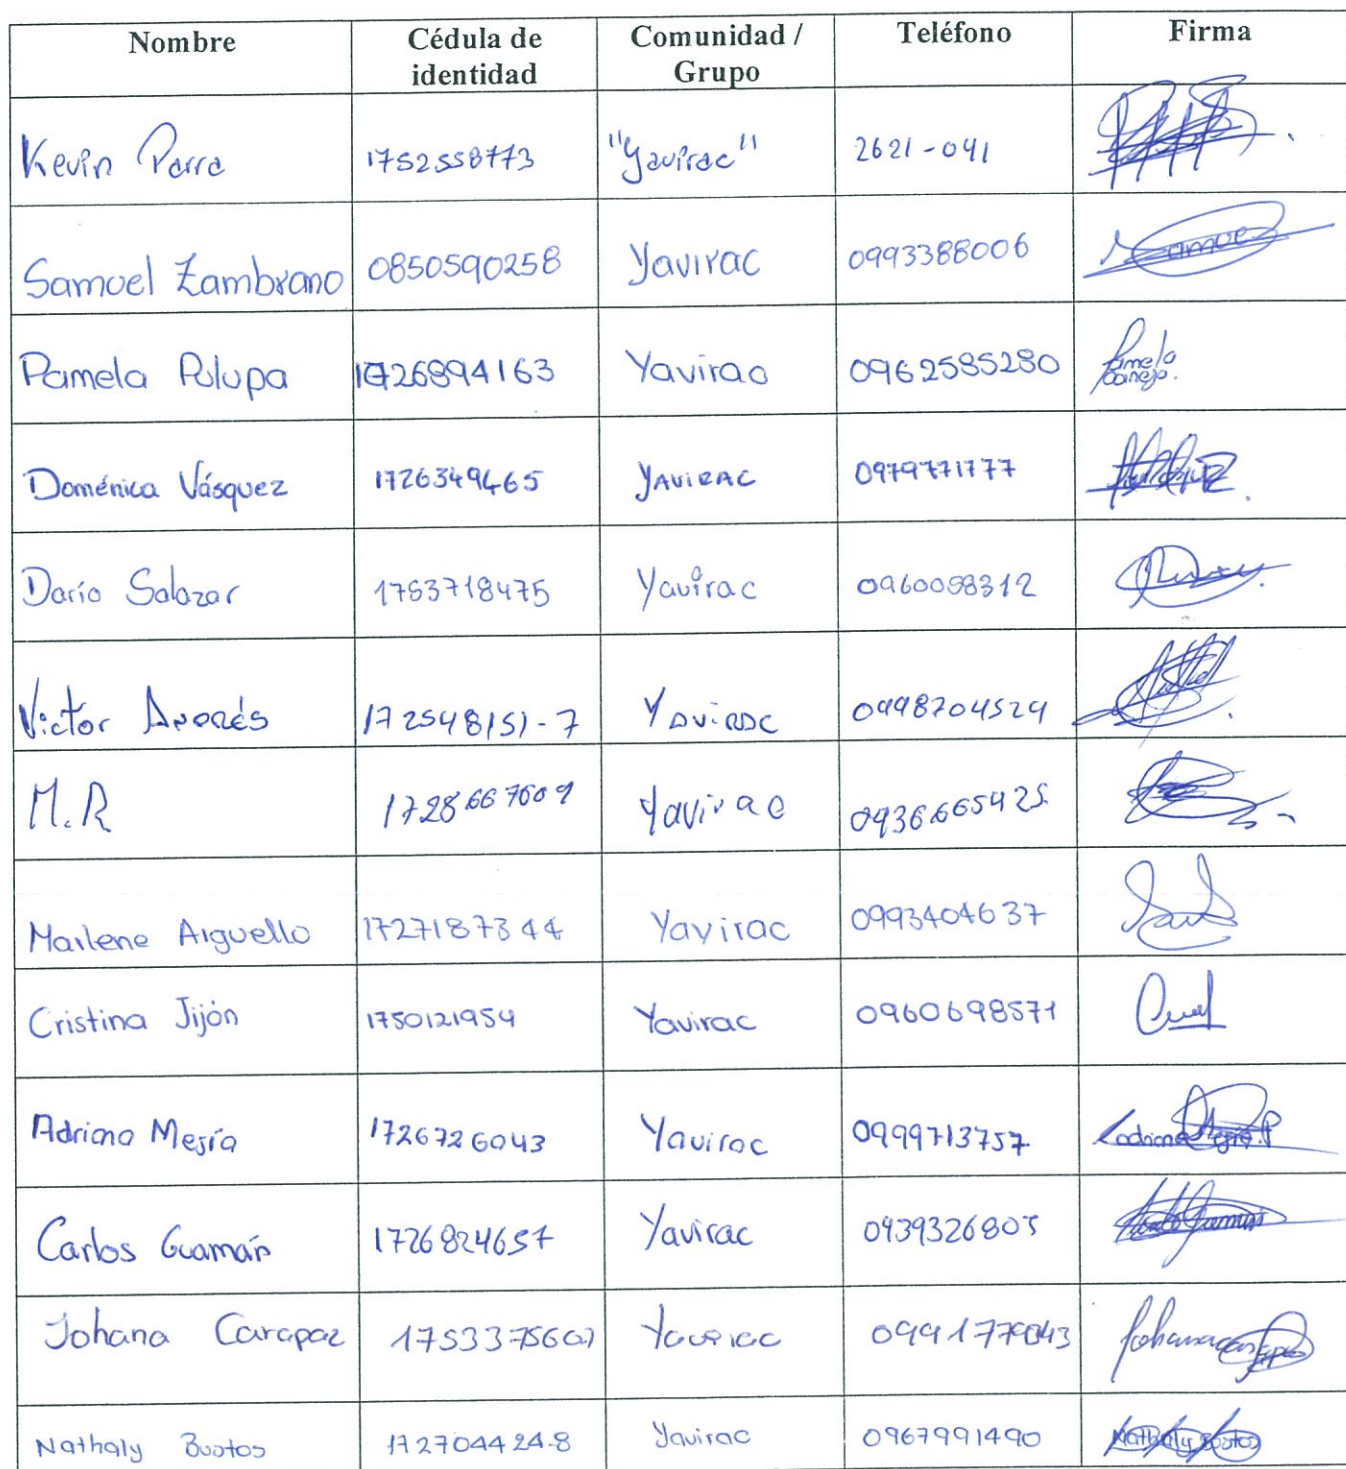 Nombre Cédula de identidad Comunidad / Grupo Teléfono Firma
Kevin Parra 1752558773 "Yavirac" 2621-041
Samuel Zambrano 0850590258 Yavirac 0993388006 Samuel
Pamela Pulupa 1726894163 Yavirac 0962585280 Pamela
Doménica Vásquez 1726349465 YAVIRAC 0979771777
Darío Salazar 1753718475 Yavirac 0960058312
Victor 172548151-7 Yavirac 0998704524
M.R 1728667609 Yavirac 0936665425
Marlene Arguello 1727187344 Yavirac 0993404637
Cristina Jijón 1750121954 Yavirac 0960698571
Adriana Mejía 1726726043 Yavirac 0999713757
Carlos Guamán 1726824657 Yavirac 0939326805
Johana Carapaz Yavirac
Nathaly Bustos 172704424-8 Yavirac 0967991490 Nathaly Bustos